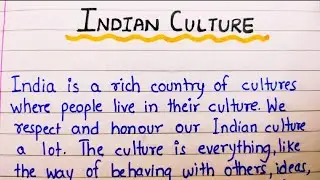 INDIAN CULTURE
India is a rich country of cultures
where people live in their culture. We
respect and honour our Indian culture
a lot. The culture is everything, like
the way of behaving with others, ideas,